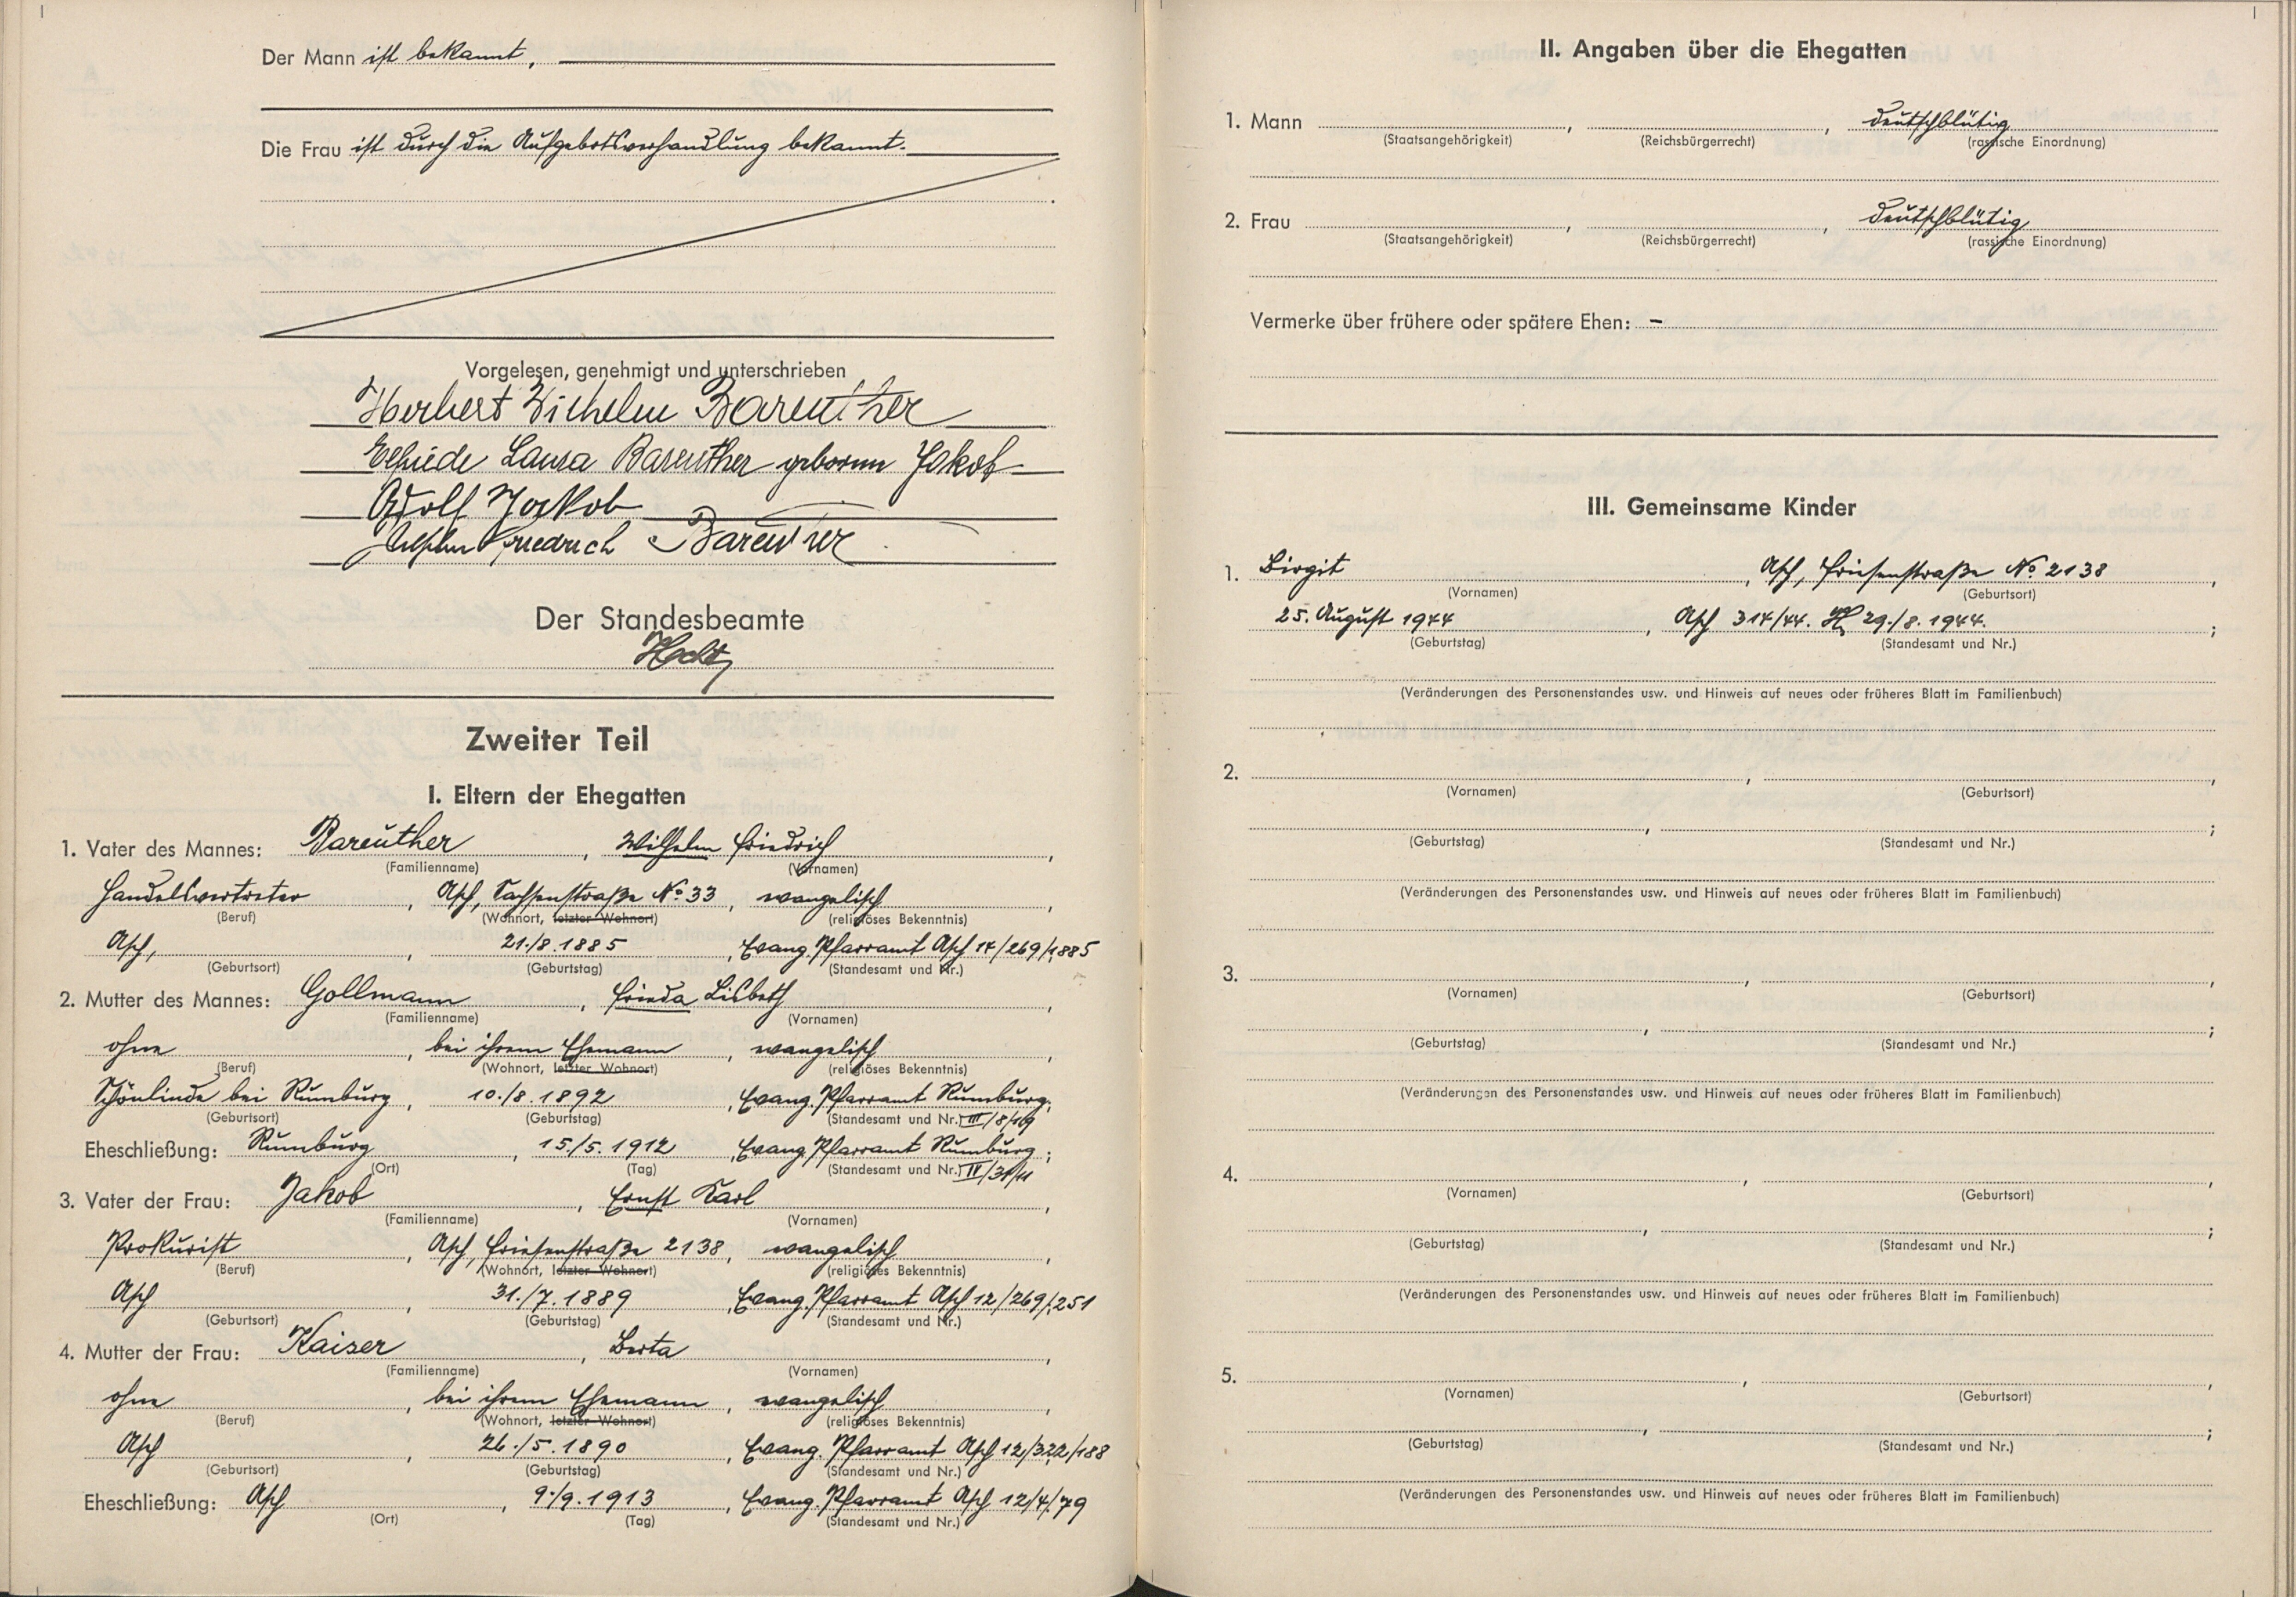 Der Mann ist bekannt,
Die Frau ist durch die Aufgebotsverhandlung bekannt.
Vorgelesen, genehmigt und unterschrieben
Herbert Wilhelm Bareuther
Elfriede Laura Bareuther geborene Jakob
Adolf Jakob
Wilhelm Friedrich Bareuther
Der Standesbeamte
Zweiter Teil
I. Eltern der Ehegatten
1. Vater des Mannes: Bareuther, Wilhelm Friedrich,
(Familienname) (Vornamen)
Handelsvertreter, Asch, Sachsenstraße No 33, evangelisch,
(Beruf) (Wohnort, letzter Wohnort) (religiöses Bekenntnis)
Asch, , 21./8.1885, Evang. Pfarramt Asch 14/269/1885
(Geburtsort) (Geburtstag) (Standesamt und Nr.)
2. Mutter des Mannes: Gollmann, Frieda Lisbeth,
(Familienname) (Vornamen)
ohne, bei ihrem Ehemann, evangelisch,
(Beruf) (Wohnort, letzter Wohnort) (religiöses Bekenntnis)
Schönlinde bei Rumburg, 10./8.1892, Evang. Pfarramt Rumburg;
(Geburtsort) (Geburtstag) (Standesamt und Nr.) III/8/
Eheschließung: Rumburg, 15./5.1912, Evang. Pfarramt Rumburg;
(Ort) (Tag) (Standesamt und Nr.)
3. Vater der Frau: Jakob, Ernst Karl,
(Familienname) (Vornamen)
Prokurist, Asch, Friesenstraße 2138, evangelisch,
(Beruf) (Wohnort, letzter Wohnort) (religiöses Bekenntnis)
Asch, 31./7.1889, Evang. Pfarramt Asch 12/269/251
(Geburtsort) (Geburtstag) (Standesamt und Nr.)
4. Mutter der Frau: Kaiser, Berta,
(Familienname) (Vornamen)
ohne, bei ihrem Ehemann, evangelisch,
(Beruf) (Wohnort, letzter Wohnort) (religiöses Bekenntnis)
Asch, 26./5.1890, Evang. Pfarramt Asch 12/322/188
(Geburtsort) (Geburtstag) (Standesamt und Nr.)
Eheschließung: Asch, 9./9.1913, Evang. Pfarramt Asch 12/4/79
(Ort) (Tag) (Standesamt und Nr.)
II. Angaben über die Ehegatten
1. Mann , , deutschblütig
(Staatsangehörigkeit) (Reichsbürgerrecht) (rassische Einordnung)
2. Frau , , deutschblütig
(Staatsangehörigkeit) (Reichsbürgerrecht) (rassische Einordnung)
Vermerke über frühere oder spätere Ehen: –
III. Gemeinsame Kinder
1. Birgit, Asch, Friesenstraße No 2138,
(Vornamen) (Geburtsort)
25. August 1944, Asch 314/44. 29./8.1944.;
(Geburtstag) (Standesamt und Nr.)
(Veränderungen des Personenstandes usw. und Hinweis auf neues oder früheres Blatt im Familienbuch)
2. , ,
(Vornamen) (Geburtsort)
, ;
(Geburtstag) (Standesamt und Nr.)
(Veränderungen des Personenstandes usw. und Hinweis auf neues oder früheres Blatt im Familienbuch)
3. , ,
(Vornamen) (Geburtsort)
, ;
(Geburtstag) (Standesamt und Nr.)
(Veränderungen des Personenstandes usw. und Hinweis auf neues oder früheres Blatt im Familienbuch)
4. , ,
(Vornamen) (Geburtsort)
, ;
(Geburtstag) (Standesamt und Nr.)
(Veränderungen des Personenstandes usw. und Hinweis auf neues oder früheres Blatt im Familienbuch)
5. , ,
(Vornamen) (Geburtsort)
, ;
(Geburtstag) (Standesamt und Nr.)
(Veränderungen des Personenstandes usw. und Hinweis auf neues oder früheres Blatt im Familienbuch)